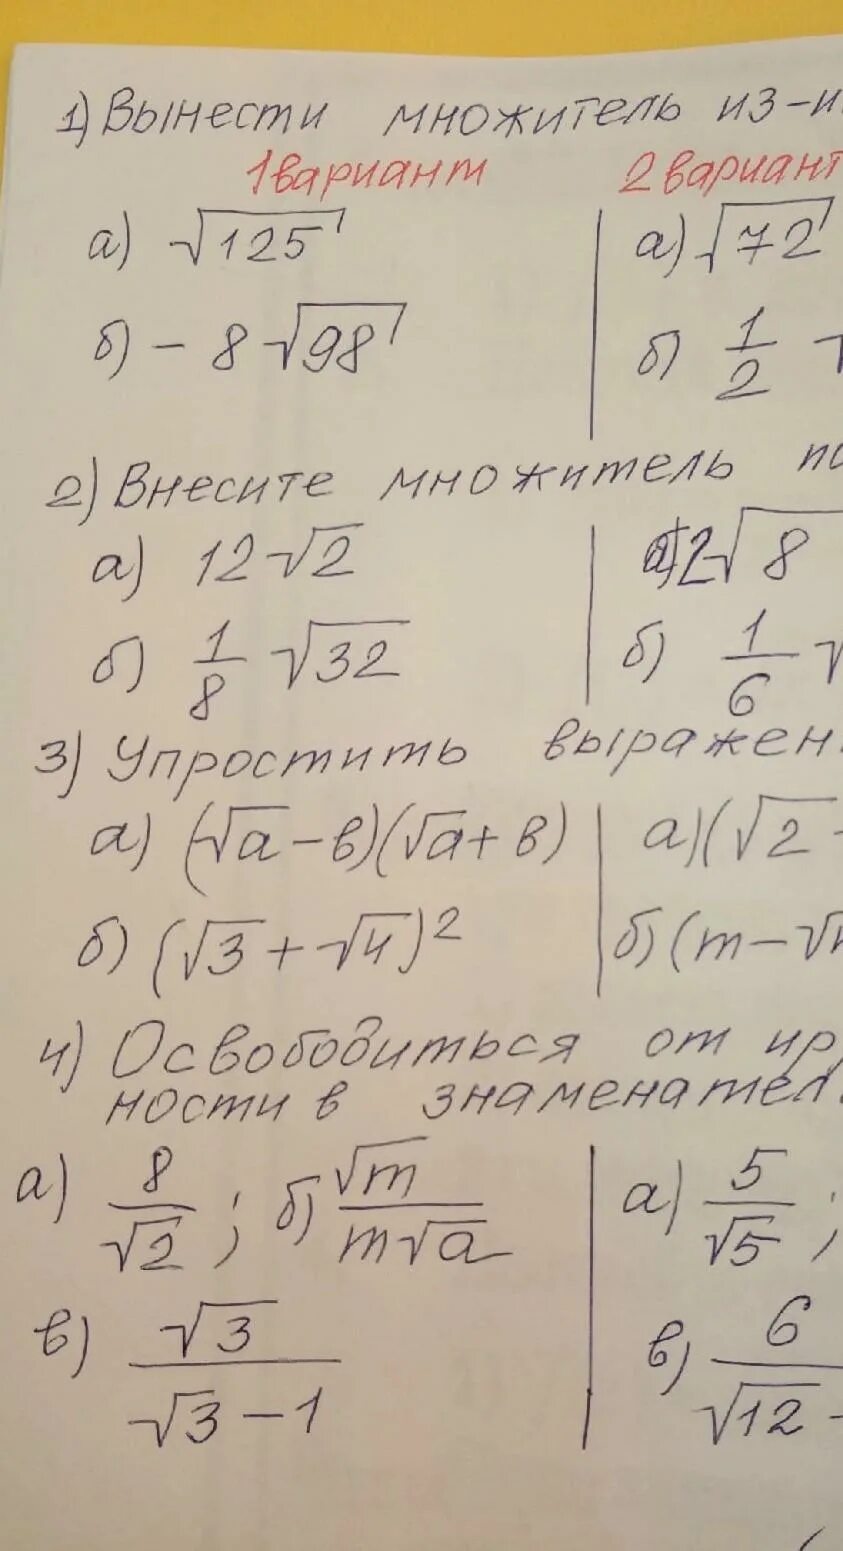 1) Вынести множитель из-
1 вариант 2 вариант
а) √125 а) √72
б) - 8√98 б) 1/2 √
2) Внесите множитель
а) 12√2 а) 2√8
б) 1/8 √32 б) 1/6 √
3) Упростить выражен
а) (√a - в)(√a + в) а) (√2
б) (√3 + √4)² б) (m - √
4) Освободиться от ир
ности в знаменател
а) 8/√2 ; б) √m/m√a а) 5/√5 ;
в) √3/√3 - 1 в) 6/√12 -